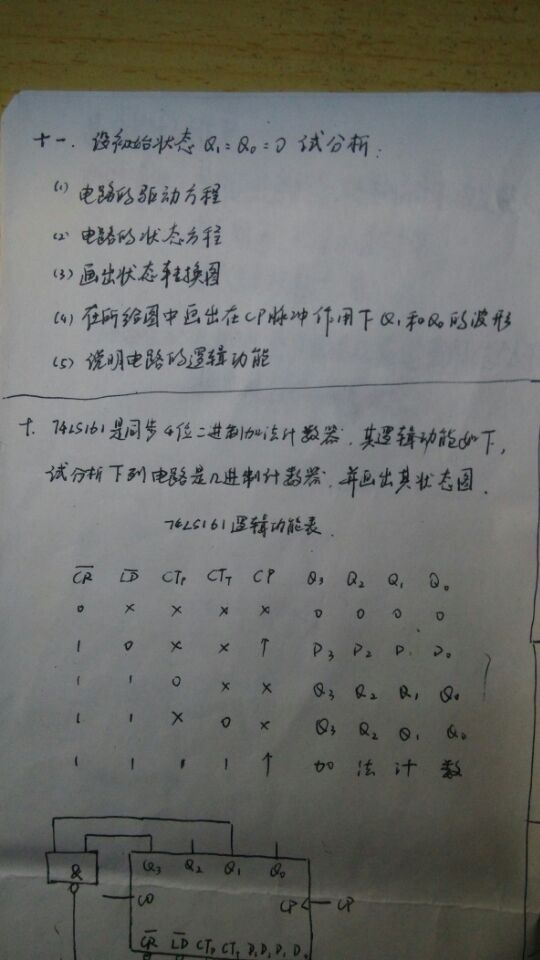 十一. 设初始状态 Q₁=Q₀=0 试分析.
(1) 电路的驱动方程
(2) 电路的状态方程
(3) 画出状态转换图
(4) 在所给图中画出在CP脉冲作用下Q₁和Q₀的波形
(5) 说明电路的逻辑功能
十. 74LS161是同步4位二进制加法计数器. 其逻辑功能如下,
试分析下列电路是几进制计数器. 并画出其状态图.
74LS161逻辑功能表.
C̅R̅ L̅D̅ CTₚ CT_T CP Q₃ Q₂ Q₁ Q₀
0 × × × × 0 0 0 0
1 0 × × ↑ D₃ D₂ D₁ D₀
1 1 0 × × Q₃ Q₂ Q₁ Q₀
1 1 × 0 × Q₃ Q₂ Q₁ Q₀
1 1 1 1 ↑ 加 法 计 数
& Q₃ Q₂ Q₁ Q₀
CO CP CP
C̅R̅ L̅D̅ CTₚ CT_T D₃ D₂ D₁ D₀